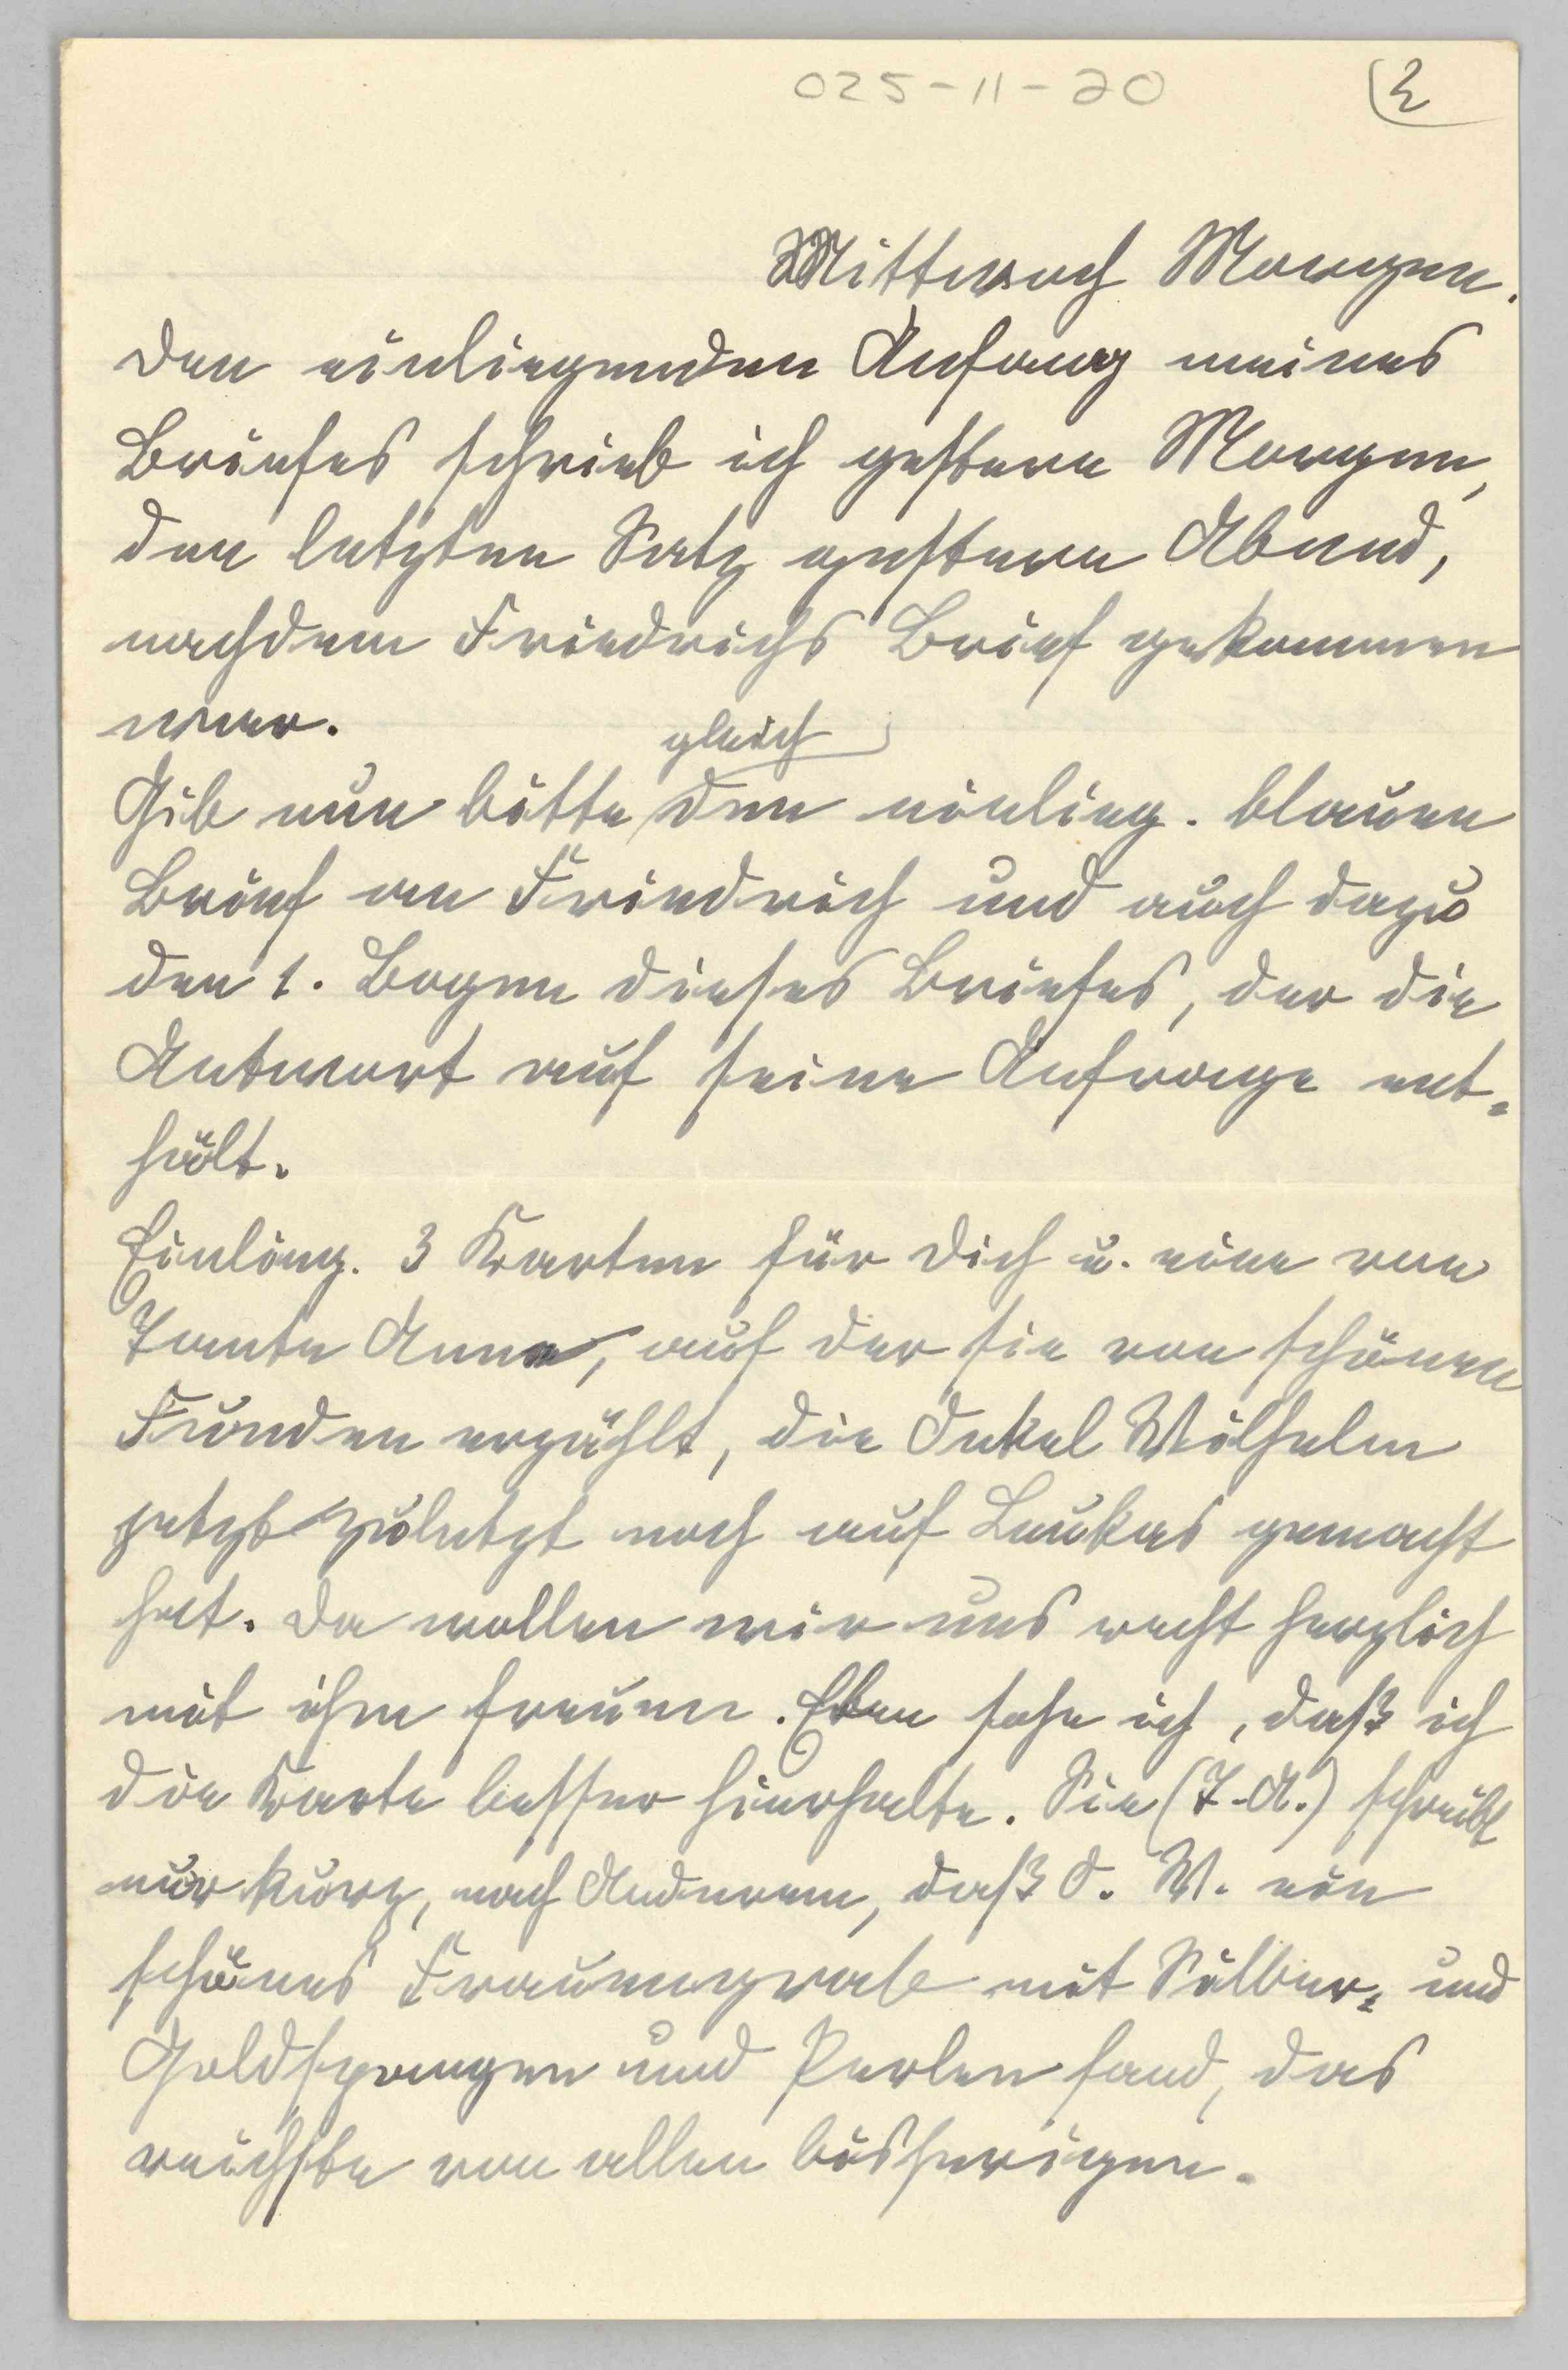 025-11-20
2
Mittwoch Morgen.
Den einliegenden Anfang meines
Briefes schrieb ich gestern Morgen,
den letzten Satz gestern Abend,
nachdem Friedrichs Brief gekommen
war.
gleich
Gib nun bitte den einlieg. blauen
Brief an Friedrich und auch dazu
den 1. Bogen dieses Briefes, der die
Antwort auf seine Anfrage ent-
hält.
Einlieg. 3 Karten für Dich u. eine von
Tante Anna, auf der sie von schönen
Funden erzählt, die Onkel Wilhelm
jetzt zuletzt noch auf Leukas gemacht
hat. Da wollen wir uns recht herzlich
mit ihm freuen. Eben sehe ich, daß ich
die Karte besser hierhalte. Sie (T. A.) schreibt
nur kurz, nach Anderem, daß O. W. ein
schönes Frauengrab mit Silber- und
Goldspangen und Perlen fand, das
reichste von allen bisherigen.